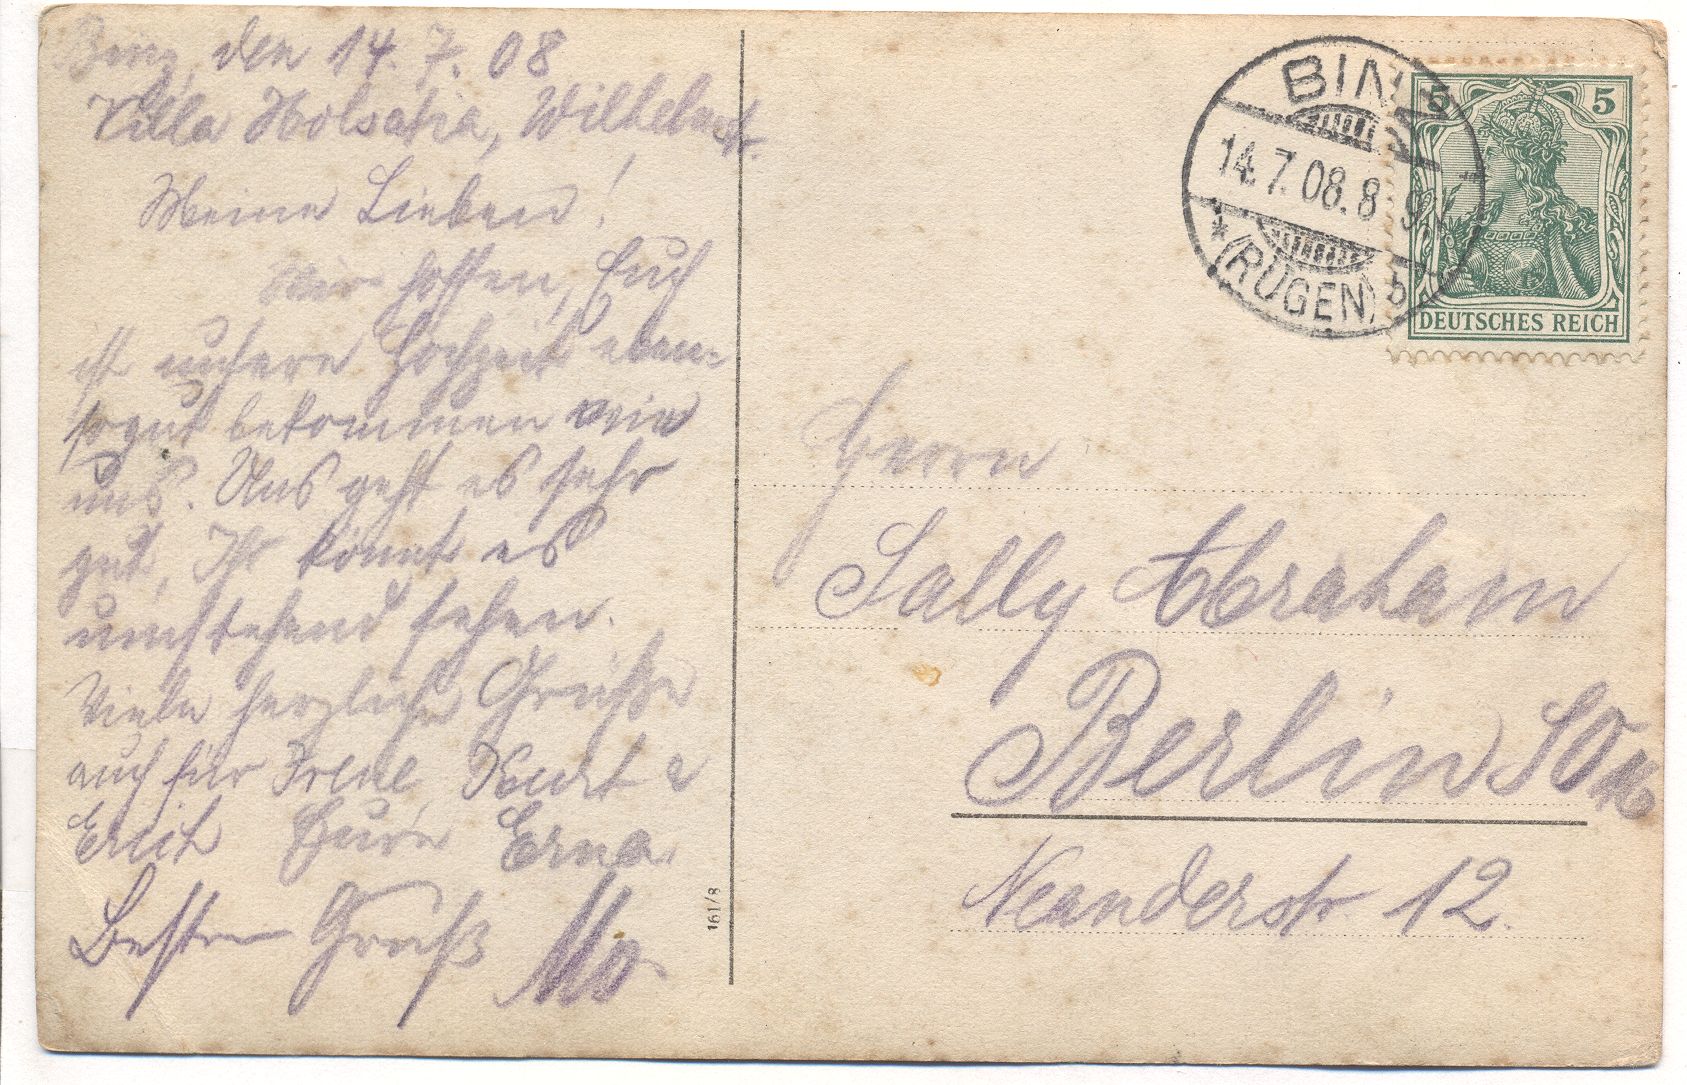 Binz, den 14. 7. 08
Villa Holsatia, Wilhelmstr.
Meine Lieben!
Wir hoffen, Euch
ist unsere Hochzeit eben-
sogut bekommen wie
uns. Uns geht es sehr
gut, Ihr könnt es
umstehend sehen.
Viele herzliche Grüße
auch für Irene, Kurt u
Erich Eure Erna.
Besten Gruß
161/8
BINZ
14.7.08.8-9V
* (RÜGEN) b
5 5
DEUTSCHES REICH
Herrn
Sally Abraham
Berlin SO
Neanderstr. 12.